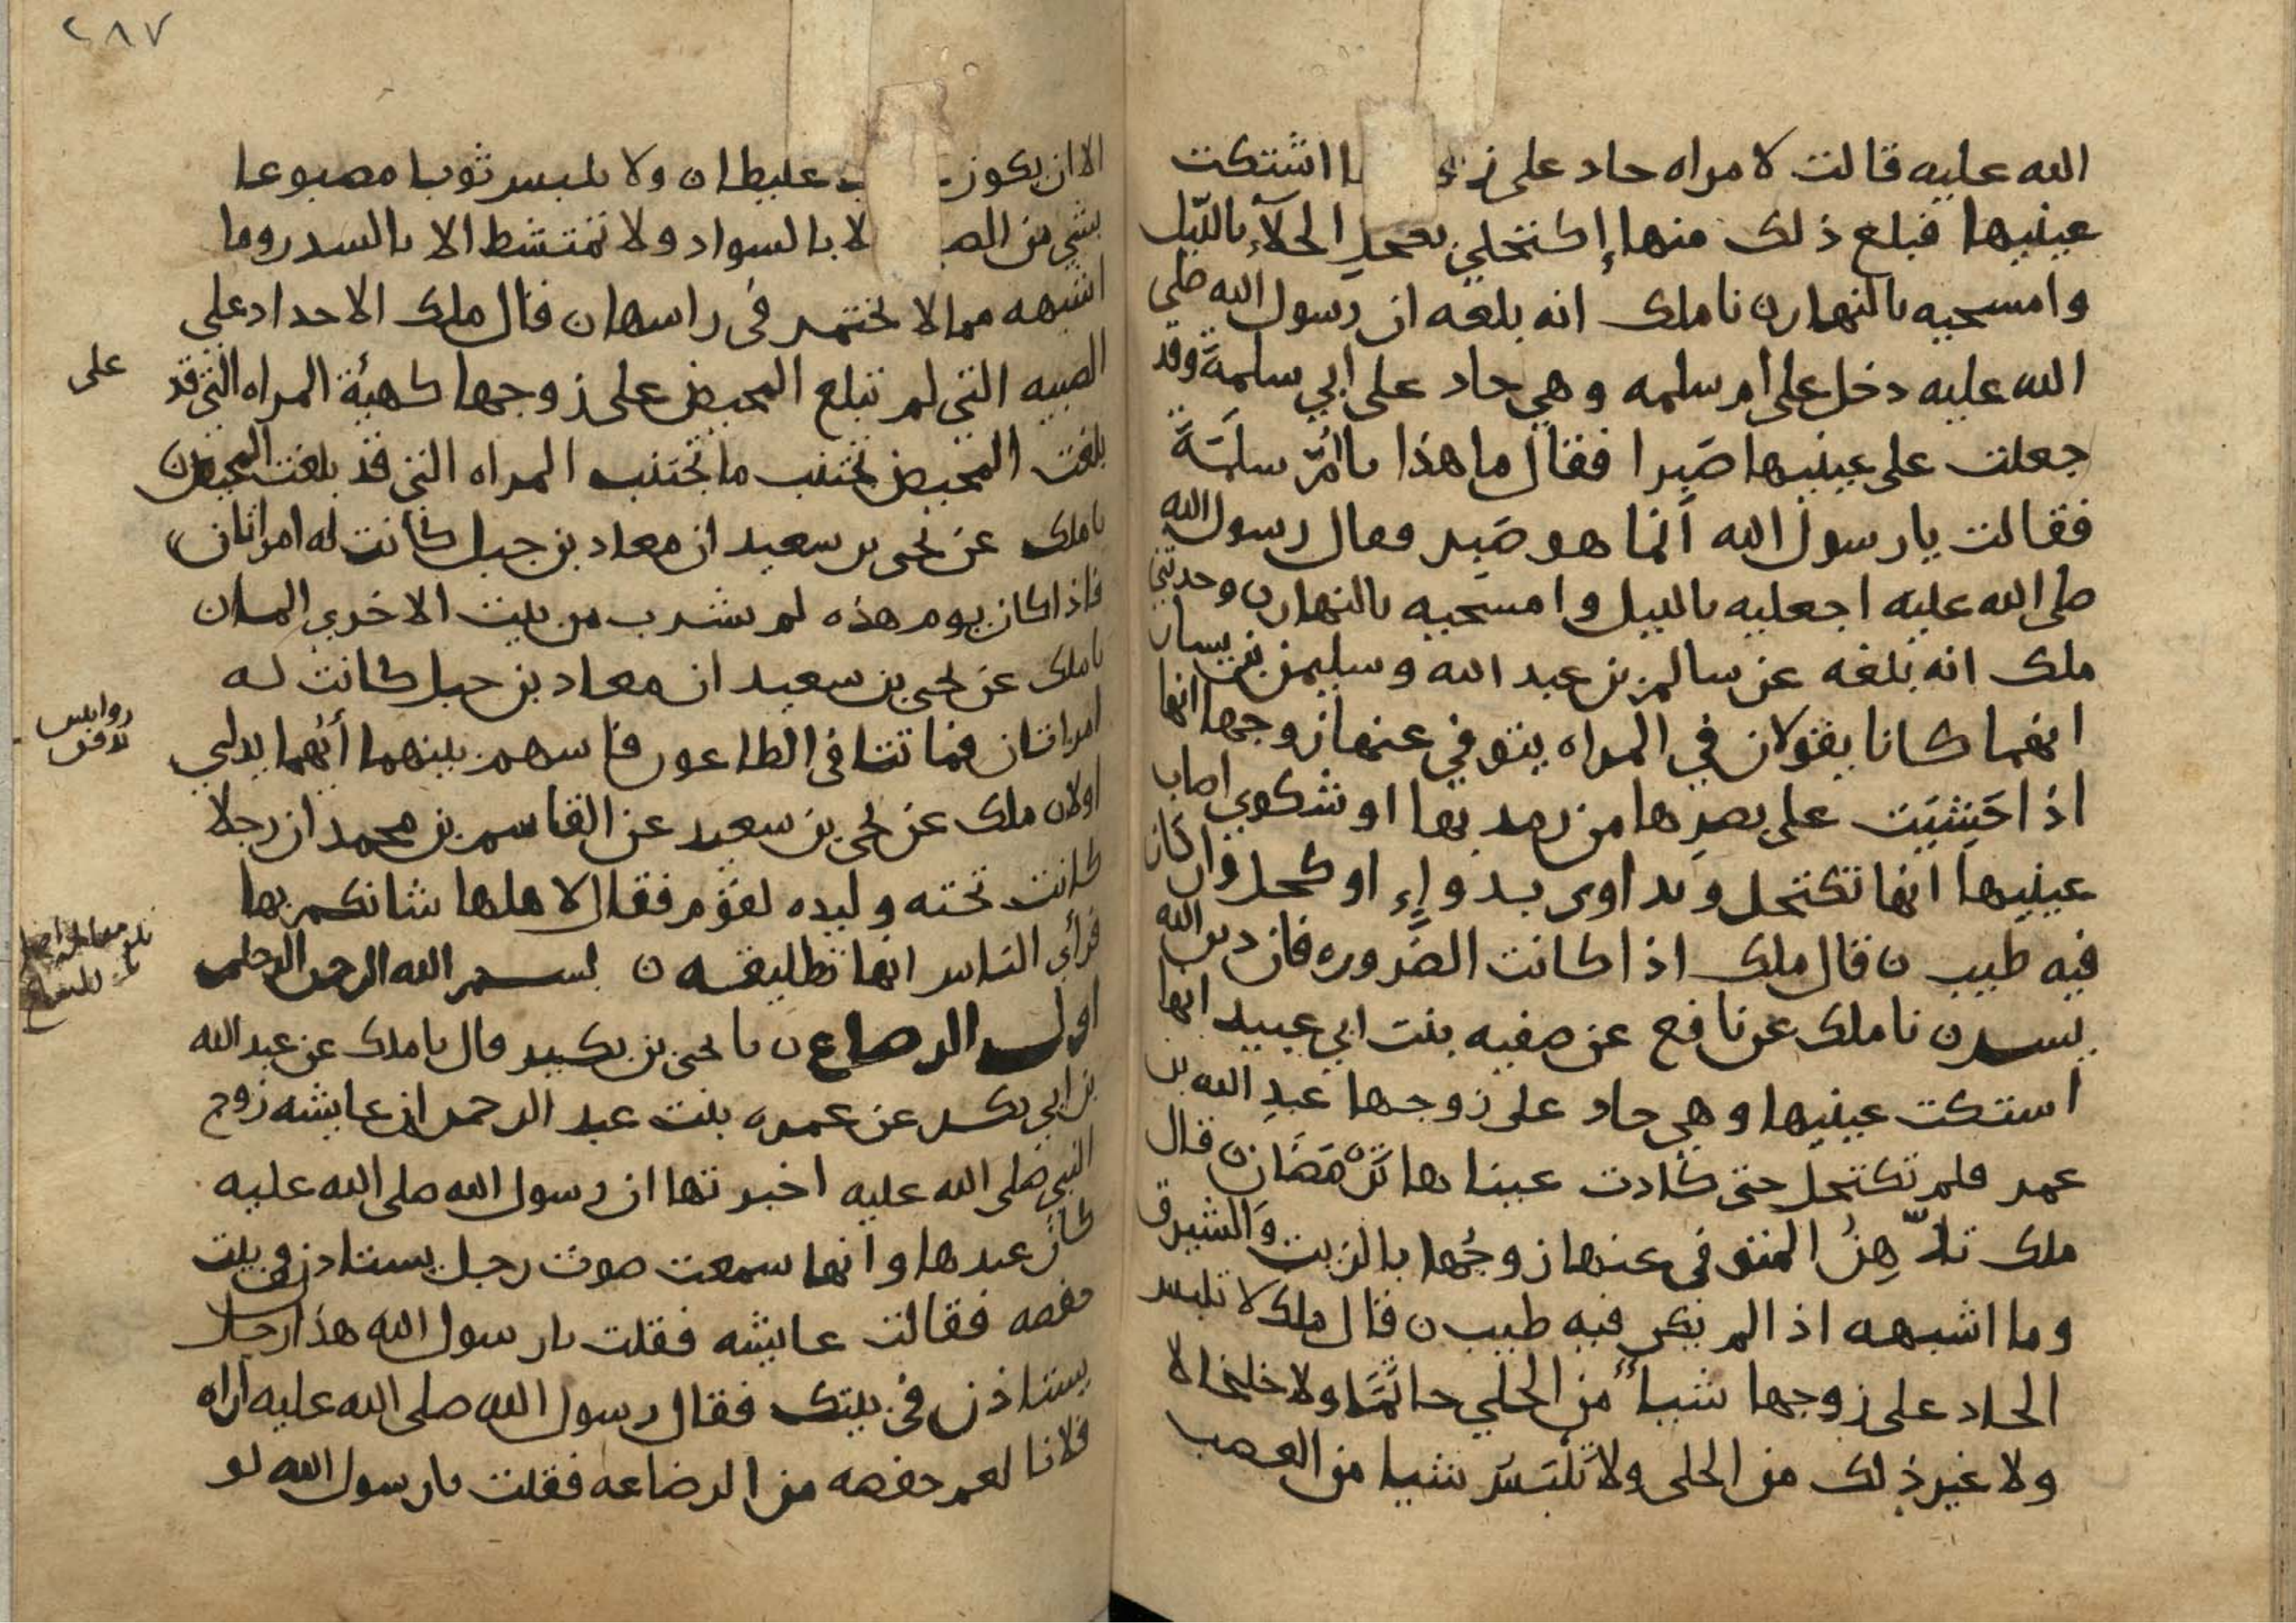 الله عليه قالت لامراه حاد على زو ا اشتكت
عينيها فبلغ ذلك منها إكتحلي بكحل الجلآء بالليل
وامسحيه بالنهار ن نا ملك انه بلغه ان رسول الله صلى
الله عليه دخل على ام سلمه وهي حاد على ابي سلمة وقد
جعلت على عينيها صَبِرا فقال ما هذا يا امّ سلمَة
فقالت يا رسول الله انما هو صَبِر فقال رسول الله
صلى الله عليه اجعليه بالليل وامسحيه بالنهار ن وحدثني
ملك انه بلغه عن سالم بن عبد الله وسليمن بن يسار
انهما كانا يقولان في المراه يتوفى عنها زوجها انها
اذا خَشِيَت على بصرها من رمد بها او شكوي اصاب
عينيها انها تكتحل وتداوى بدواءٍ او كحل وان كان
فيه طيب ن قال ملك اذا كانت الضَّروره فان دين الله
يسر ن نا ملك عن نافع عن صفيه بنت ابي عبيد انها
اشتكت عينيها وهي حاد على زوجها عبدِ الله بن
عمر فلم تكتحل حتى كادت عيناها تَرْمَصَان ن قال
ملك تدَّهِنُ المتوفى عنها زوجُها بالزيت والشيرق
وما اشبهه اذا لم يكن فيه طيب ن قال ملك لا تلبس
الحاد على زوجها شيئا من الحلي خاتمًا ولا خلخالا
ولا غير ذلك من الحلى ولا تلْبَسُ شيا من العصب
الا ان يكون عصب غليظا ن ولا تلبس ثوبا مصبوغا
بشي من الص لا بالسواد ولا تمتشط الا بالسدر وما
اشبهه مما لا يختمر في راسها ن قال ملك الاحداد على
الصبيه التي لم تبلغ المحيض على زوجها كهيئة المراه التي قد
على
بلغت المحيض تجتنب ما تجتنب المراه التي قد بلغت المحيض ن
نا ملك عن يحيى بن سعيد ان معاد بن جبل كانت له امراتان
فاذا كان يوم هذه لم يشرب من بيت الاخرى الما ن
نا ملك عن يحيى بن سعيد ان معاد بن جبل كانت له
امراتان فماتتا في الطاعون فاسهم بينهما أيهما يدلي
اولا ن ملك عن يحيى بن سعيد عن القاسم بن محمد ان رجلا
كانت تحته وليده لقوم فقال لاهلها شانكم بها
فرأى الناس انها تطليقه ن بسم الله الرحمن الرحيم
اول الرضاع ن نا يحيى بن بكير قال نا ملك عن عبد الله
بن ابي بكر عن عمره بنت عبد الرحمن ان عايشه زوج
النبي صلى الله عليه اخبرتها ان رسول الله صلى الله عليه
كان عندها وانها سمعت صوت رجل يستاذن في بيت
حفصه فقالت عايشه فقلت يا رسول الله هذا رجل
يستاذن في بيتك فقال رسول الله صلى الله عليه اراه
فلانا لعم حفصه من الرضاعه فقلت يا رسول الله لو
٢٨٧